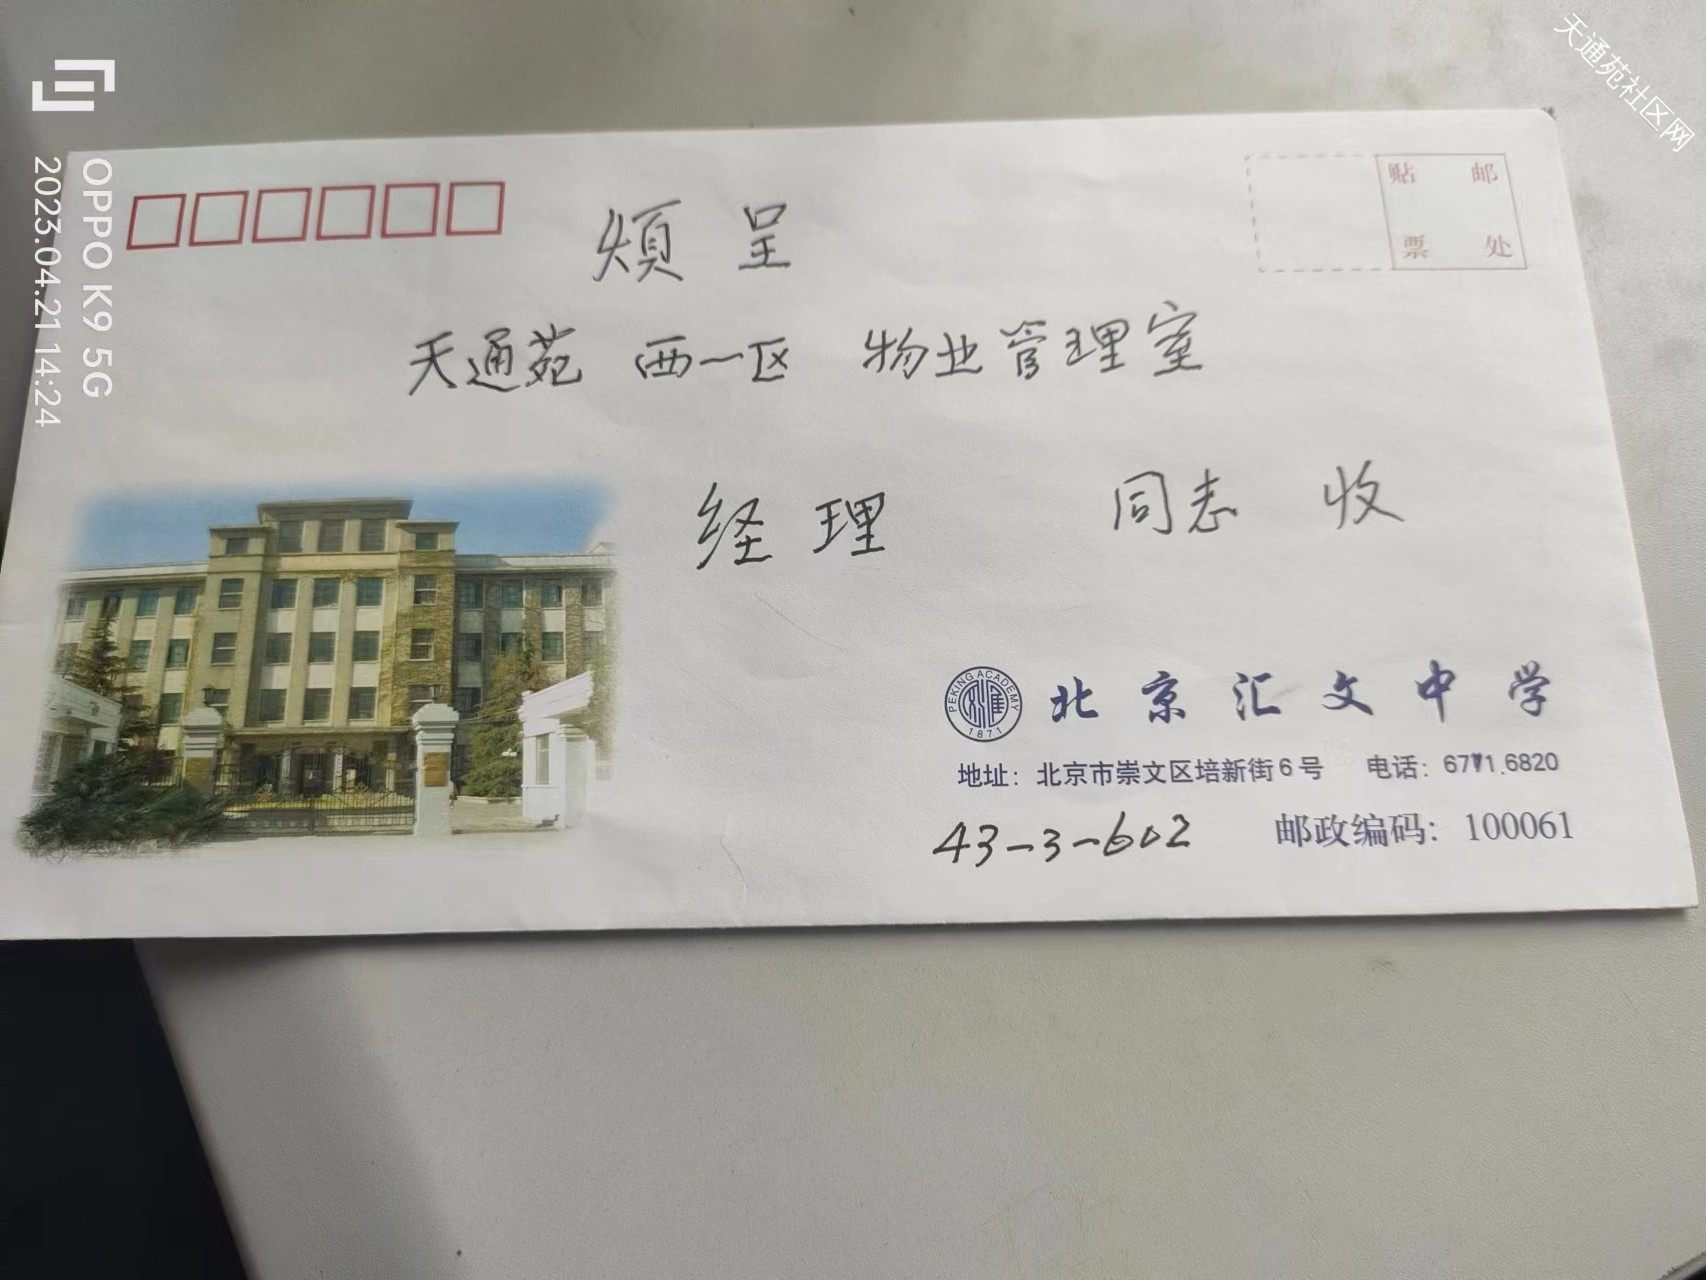 天通苑社区网
OPPO K9 5G
2023.04.21 14:24
贴 邮
票 处
烦呈
天通苑 西一区 物业管理室
经理 同志 收
PEKING ACADEMY
1871
北京汇文中学
地址：北京市崇文区培新街6号 电话：6771.6820
43-3-602 邮政编码：100061